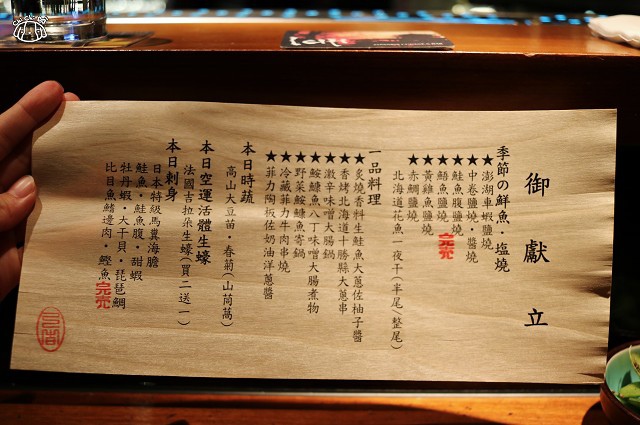 御獻立
季節の鮮魚・塩燒
★澎湖車蝦鹽燒
★中卷鹽燒・醬燒
★鮭魚腹鹽燒
★鮖魚鹽燒 完売
★黃雞魚鹽燒
★赤鯛鹽燒
北海道花魚一夜干(半尾/整尾)
一品料理
★炙燒香料生鮭魚大蔥佐柚子醬
★香烤北海道十勝縣大蔥串
★激辛味噌大腸鍋
★鮟鱇魚八丁味噌大腸煮物
★野菜鮟鱇魚寄鍋
★冷藏菲力牛肉串燒
★菲力陶板佐奶油洋蔥醬
本日時蔬
高山大豆苗・春菊(山茼萵)
本日空運活體生蠔
法國吉拉朵生蠔(買二送一)
本日刺身
日本特級馬糞海膽
鮭魚・鮭魚腹・甜蝦
牡丹蝦・大干貝・琵琶鯛
比目魚鰭邊肉・鰹魚 完売